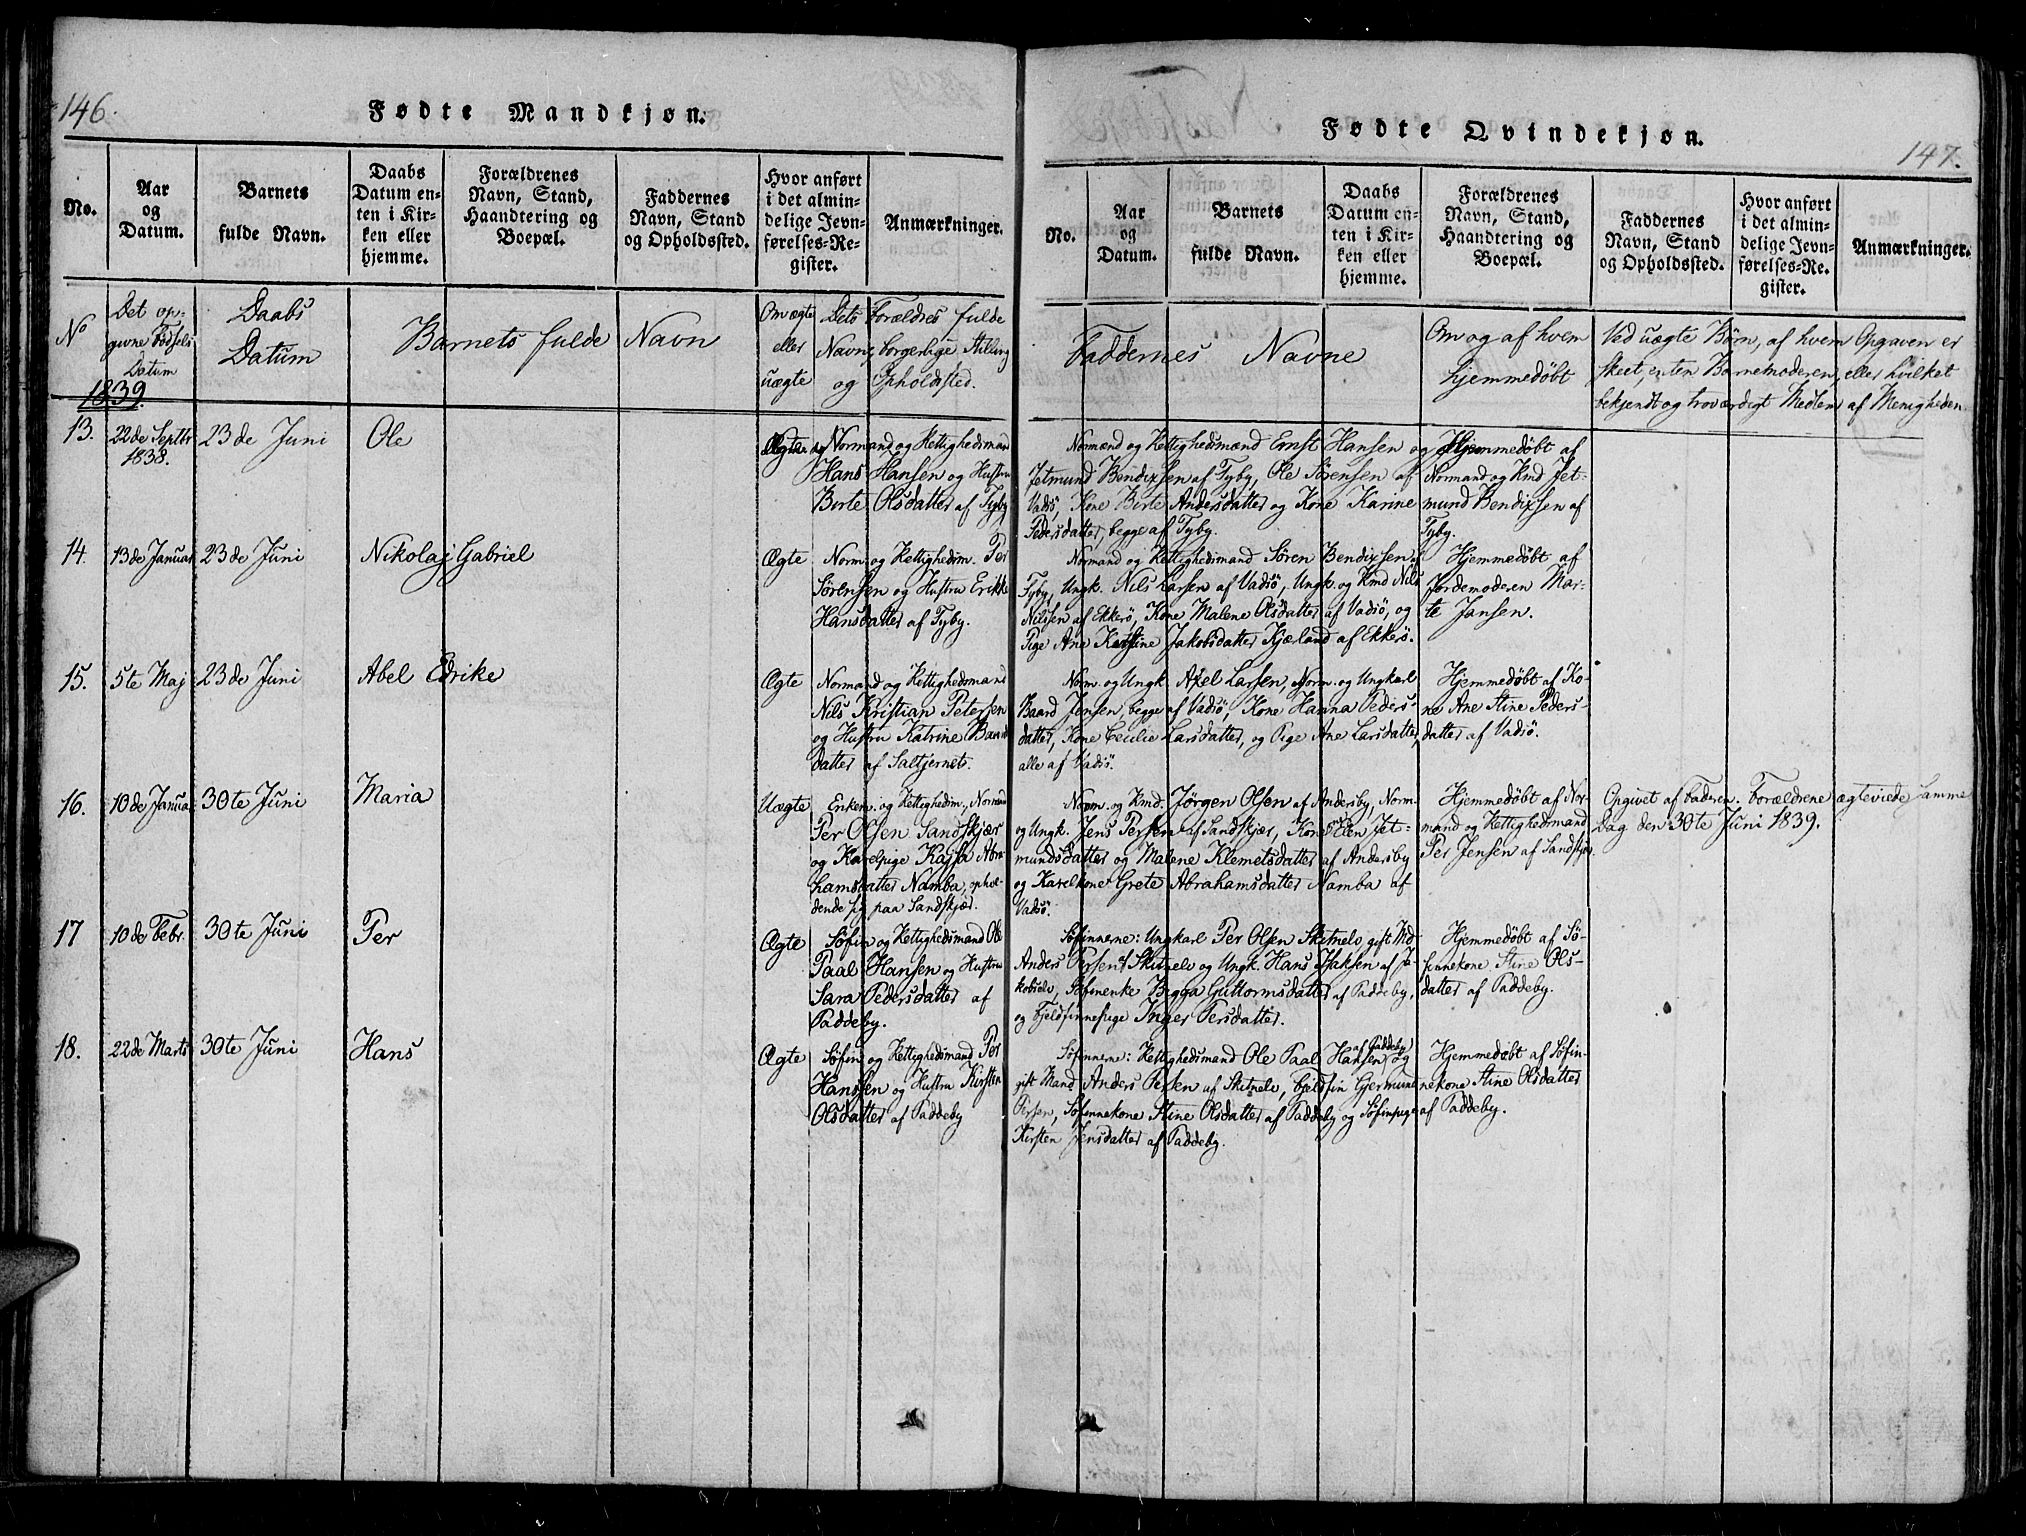 146.
Fødte Mandkjøn.
No.
Aar
og
Datum.
Barnets
fulde Navn.
Daabs
Datum en-
ten i Kir-
ken eller
hjemme.
Forældrenes
Navn, Stand,
Haandtering og
Boepæl.
Faddernes
Navn, Stand
og Opholdssted.
Hvor anført
i det almin-
delige Jevn-
førelses-Re-
gister.
Anmærkninger.
No
Det op-
givne Fødsels
Datum
Daabs
Datum
Barnets fulde Navn
Om ægte
eller
uægte
Dets Forældres fulde
Navn, borgerlige Stilling
og Opholdsted.
1839.
13.
22de Septbr
1838.
23de Juni
Ole
Ægte
Normand og Rettighedsmand
Hans Hansen og Hustru
Birte Olsdatter af Fyby
14.
13de Januar
23de Juni
Nikolaj Gabriel
Ægte
Norm. og Rettighedsm. Per
Sörensen og Hustru Erikke
Hansdatter af Fyby.
15.
5te Maj
23de Juni
Abel Edrike
Ægte
Normand og Rettighedsmand
Nils Kristian Petersen
og Hustru Katrine Baard
datter af Saltjernets.
16.
10de Januar
30te Juni
Maria
Uægte
Enkem. og Rettighedsm. Normand
Per Olsen Sandskjær
og Kavelpige Kajsa Abra-
hamsdatter Namba, ophol-
dende sig paa Sandskjær.
17
10de Febr.
30te Juni
Per
Ægte
Søfin og Rettighedsmand Ole
Paal Hansen og Hustru
Sara Pedersdatter af
Paddeby.
18.
22de Marts
30te Juni
Hans
Ægte
Søfin og Rettighedsmand Per
Hansen og Hustru Kirsten
Olsdatter af Paddeby
Fødte Qvindekjøn.
147.
No.
Aar
og
Datum.
Barnets
fulde Navn.
Daabs
Datum en-
ten i Kir-
ken eller
hjemme.
Forældrenes
Navn, Stand,
Haandtering og
Boepæl.
Faddernes
Navn, Stand
og Opholdssted.
Hvor anført
i det almin-
delige Jevn-
førelses-Re-
gister.
Anmærkninger.
Faddernes Navne
Om og af hvem
hjemmedøbt
Ved uægte Børn, af hvem Opgaven er
skeet, enten Barnemoderen, eller hvilket
bekjendt og troværdigt Medlem af Menigheden.
Normænd og Rettighedsmænd Ernst Hansen og
Jetmund Bendixsen af Fyby, Ole Sörensen af
Vadsö, Kone Birte Andersdatter og Kone Karine
Pedersdatter, begge af Fyby.
Hjemmedøbt af
Normand og Rmd Jet-
mund Bendixsen af
Fyby.
Normand og Rettighedsmand Sören Bendixsen af
Fyby, Ungk. Nils Larsen af Vadsö, Ungk. og Rmd Nils
Nilssen af Ekkerö, Kone Malene Olsdatter af Vadsö, og
Pige Ane Kirstine Jakobsdatter Kjæland af Ekkerö.
Hjemmedøbt af
Jordemoderen Mar-
te Jansen.
Norm. og Ungk. Axel Larsen, Norm. og Ungkarl
Baard Jensen, begge af Vadsö, Kone Hanna Peders-
datter, Kone Cecilie Larsdatter, og Pige Ane Larsdatter,
alle af Vadsö.
Hjemmedøbt af Ko-
ne Ane Stine Peders-
datter af Vadsö.
Norm. og Rmd. Jörgen Olsen af Andersby, Norm.
og Ungk. Jens Persen af Sandskjær, Kone Elen Jet-
mundsdatter og Malene Klemetsdatter af Andersby
og Kavelkone Grete Abrahamsdatter Namba af
Vadsö.
Hjemmedøbt af Nor-
mand og Rettighedsmand
Per Jensen af Sandskjær.
Opgivet af Faderen. Forældrene ægteviede samme
Dag den 30te Juni 1839.
Söfinnerne: Ungkarl Per Olsen Skitnelv, gift Md
Anders Persen af Skitnelv og Ungk. Hans Isaksen af Ja-
kobselv, Söfinenke Bigga Guttormsdatter af Paddeby,
og Fjeldfinnepige Inger Persdatter.
Hjemmedøbt af Sö-
finnekone Stine Ols-
datter af Paddeby.
Söfinnerne: Rettighedsmand Ole Paal Hansen (af Paddeby) og
gift Mand Anders Persen af Skitnelv, Fjeldfin Germune
Persen, Söfinnekone Stine Olsdatter af Paddeby og Söfinpige
Kirsten Jensdatter af Paddeby.
Hjemmedøbt af Söfin-
nekone Stine Olsdatter
af Paddeby.